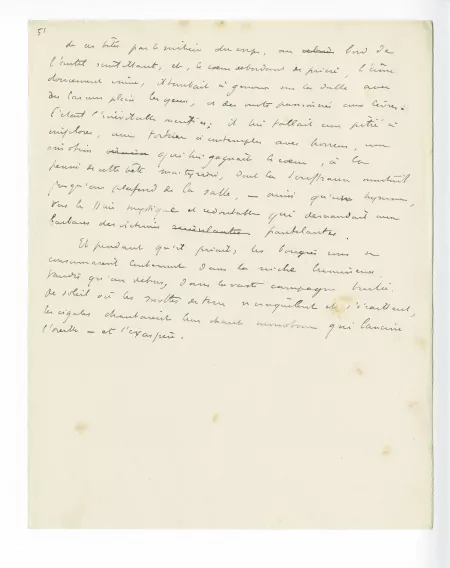 51
de ces bêtes par le milieu du corps, au bord de
l'autel scintillant, et, le cœur débordant de prière, l'âme
doucement émue, il tombait à genoux sur les dalles avec
des larmes plein les yeux, et des mots passionnés aux lèvres.
C'était l'inévitable ; il lui fallait une pitié à
implorer, une torture à contempler avec horreur, une
qui lui gagnait le cœur, à la
pensée de cette bête martyrisée, dont la souffrance montait
jusqu'au plafond de la salle, — ainsi qu'un hymne,
vers le mystique et redoutable qui demandait une
des victimes pantelantes.
Et pendant qu'il priait, les bougies une
consumaient lentement dans la niche lumineuse
tandis qu'au dehors, dans la vaste campagne brûlée
de soleil où les mottes de terre craquèlent et s'écaillent,
les cigales chantaient leur chant monotone qui lancine
l'oreille — et l'exaspère.